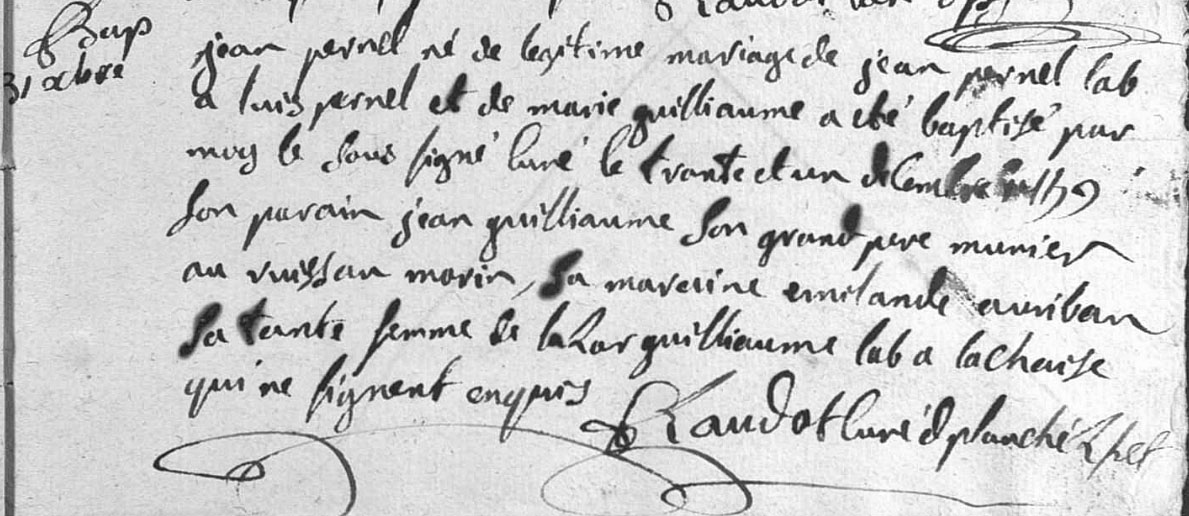 Bap
31 xbre
jean pernel né de legitime mariage de jean pernel lab
a luis pernel et de marie guilliaume a eté baptisé par
moy le sous signé curé le trante et un decembre
son parain jean guilliaume son grand pere munier
au ruissau morin, sa maraine emilande auriban
sa tante femme de lazar guilliaume lab a la chaise
qui ne signent enquis
Raudot curé d planché